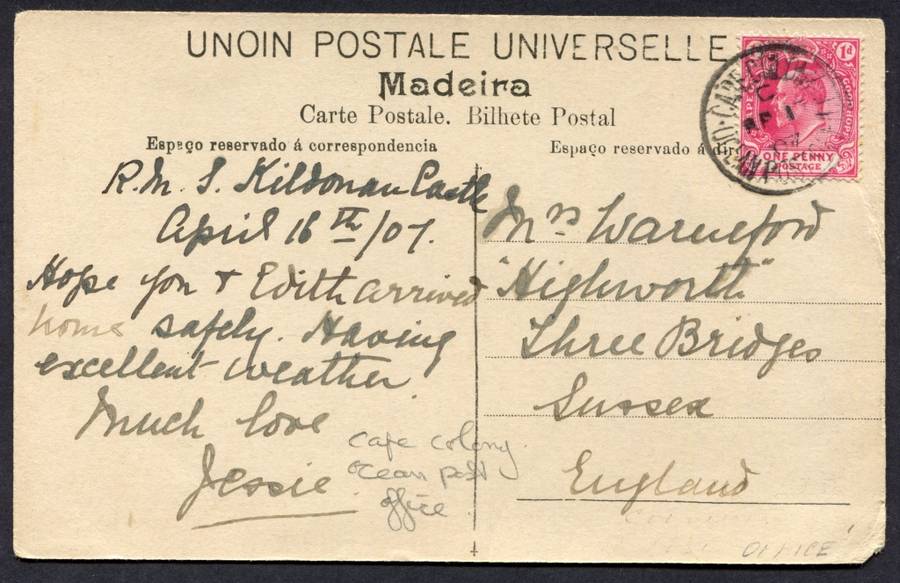 UNOIN POSTALE UNIVERSELLE
Madeira
Carte Postale. Bilhete Postal
Espaço reservado á correspondencia
Espaço reservado á
1d
GOOD HOPE
ONE PENNY
POSTAGE
R.M.S. Kildonan Castle
April 16th/07.
Hope you & Edith arrived
home safely. Having
excellent weather
Much love
Jessie
Mrs Warneford
"Highworth"
Three Bridges
Sussex
England
cape colony
ocean post
office
OFFICE